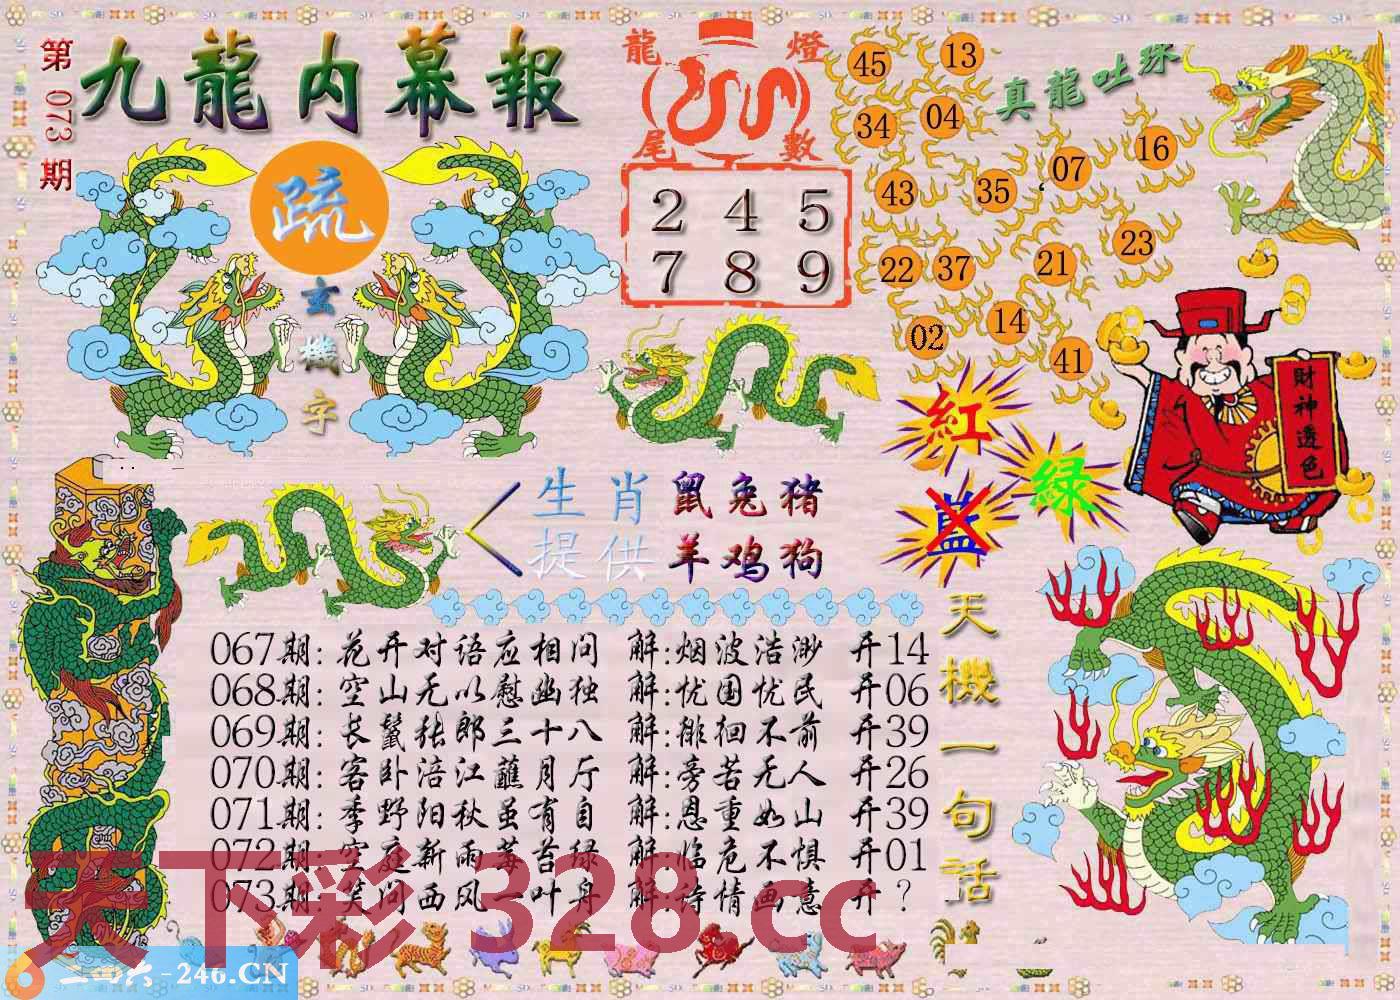 第073期
九龍内幕報
疏
玄機字
龍燈尾數
2 4 5
7 8 9
真龍吐珠
45 13
34 04
43 35 07 16
22 37 21 23
02 14 41
財神透色
紅
绿
藍
生肖 鼠兔猪
提供 羊鸡狗
067期: 花开对语应相问 解:烟波浩渺 开14
068期: 空山无以慰幽独 解:忧国忧民 开06
069期: 长鬣张郎三十八 解:徘徊不前 开39
070期: 客卧涪江蘸月厅 解:旁若无人 开26
071期: 季野阳秋虽有自 解:恩重如山 开39
072期: 空庭新雨莓苔绿 解:临危不惧 开01
073期: 笑问西风一叶舟 解:诗情画意 开？
天機一句話
天下彩 328.cc
二四六-246.CN